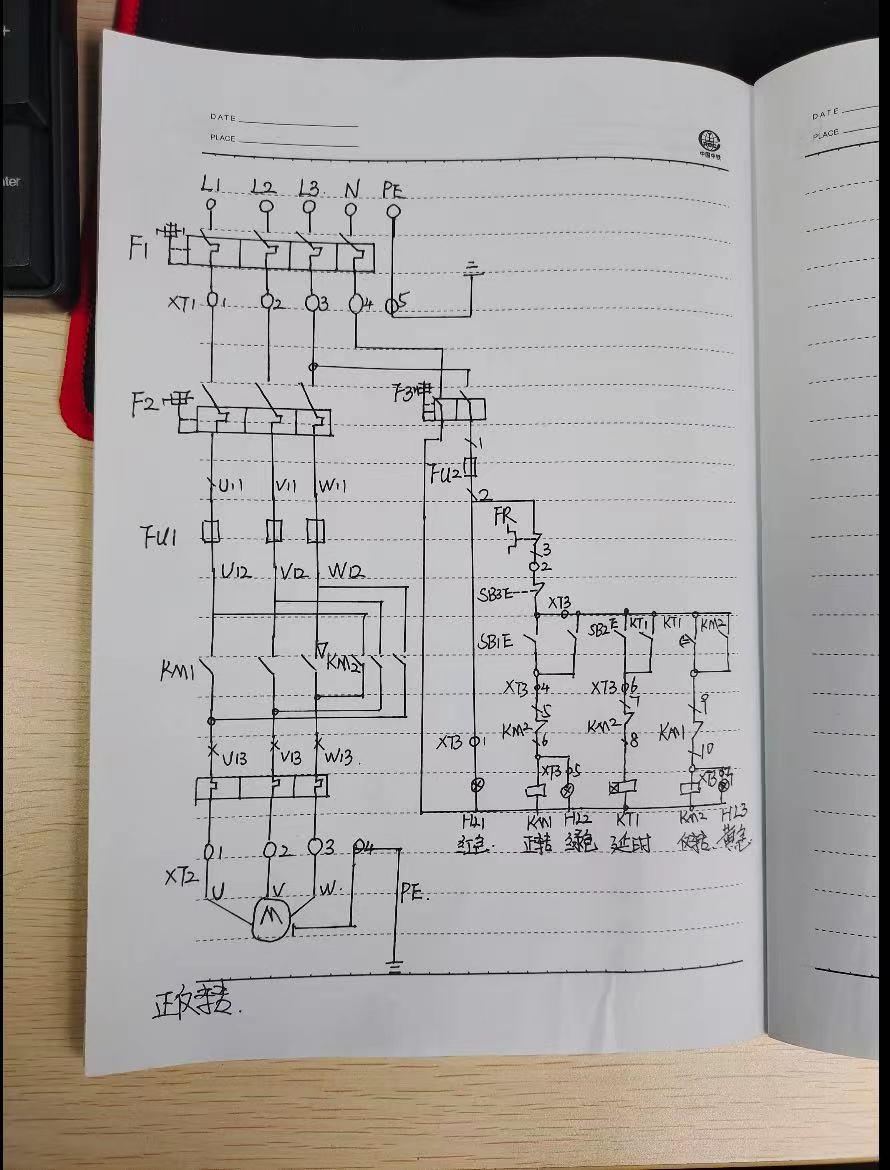 DATE
PLACE
中国中铁
DATE
PLACE
L1 L2 L3 N PE
F1
XT1 1 2 3 4 5
F2 F3
1
U11 V11 W11 FU2
2
FR
FU1
3
2
U12 V12 W12
SB3E XT3
SB1E SB2E KT1 KT1 KM2
KM1 KM2
XT3 4 XT3 6
5 7 9
KM2 KM2 KM1
6 8 10
XT3 1
U13 V13 W13
XT3 5 XT3
HL1 KM1 HL2 KT1 KM2 HL3
红色 正转 绿色 延时 反转 黄色
1 2 3 4
XT2
U V W
M
PE
正反转.